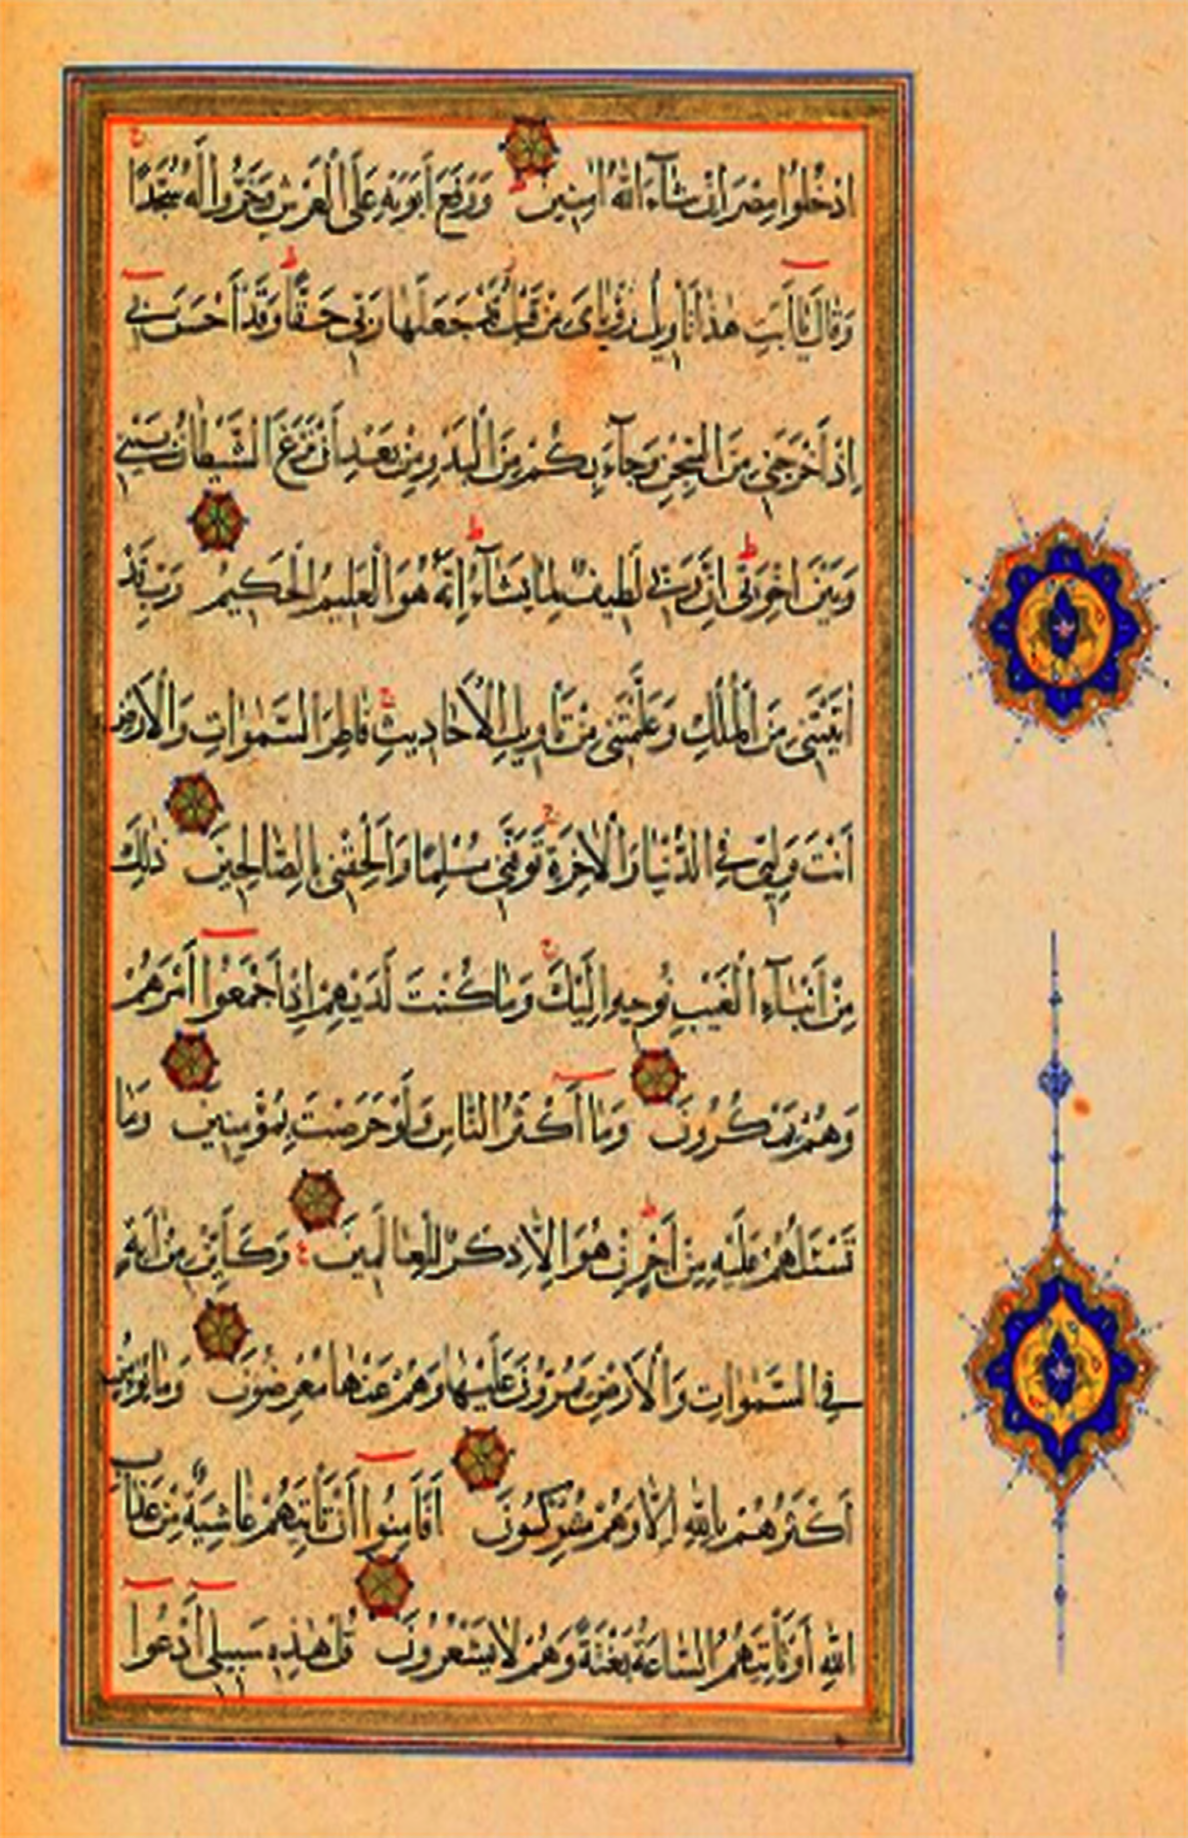 ادْخُلُوا مِصْرَ اِنْ شَاۤءَ اللّٰهُ اٰمِنِينَ ط وَرَفَعَ اَبَوَيْهِ عَلَى الْعَرْشِ وَخَرُّوا لَهُ سُجَّدًا ج
وَقَالَ يَا اَبَتِ هٰذَا تَاْوِيلُ رُؤْيَاىَ مِنْ قَبْلُ قَدْ جَعَلَهَا رَبِّى حَقًّا ط وَقَدْ اَحْسَنَ بِى
اِذْ اَخْرَجَنِى مِنَ السِّجْنِ وَجَاۤءَ بِكُمْ مِنَ الْبَدْوِ مِنْ بَعْدِ اَنْ نَزَغَ الشَّيْطَانُ بَيْنِى
وَبَيْنَ اِخْوَتِى ط اِنَّ رَبِّى لَطِيفٌ لِمَا يَشَاۤءُ ط اِنَّهُ هُوَ الْعَلِيمُ الْحَكِيمُ رَبِّ قَدْ
اٰتَيْتَنِى مِنَ الْمُلْكِ وَعَلَّمْتَنِى مِنْ تَاْوِيلِ الْاَحَادِيثِ ج فَاطِرَ السَّمٰوَاتِ وَالْاَرْضِ
اَنْتَ وَلِيِّى فِى الدُّنْيَا وَالْاٰخِرَةِ ج تَوَفَّنِى مُسْلِمًا وَاَلْحِقْنِى بِالصَّالِحِينَ ذٰلِكَ
مِنْ اَنْبَاۤءِ الْغَيْبِ نُوحِيهِ اِلَيْكَ ج وَمَا كُنْتَ لَدَيْهِمْ اِذْ اَجْمَعُوا اَمْرَهُمْ
وَهُمْ يَمْكُرُونَ وَمَا اَكْثَرُ النَّاسِ وَلَوْ حَرَصْتَ بِمُؤْمِنِينَ وَمَا
تَسْئَلُهُمْ عَلَيْهِ مِنْ اَجْرٍ ط اِنْ هُوَ اِلَّا ذِكْرٌ لِلْعَالَمِينَ ع وَكَاَيِّنْ مِنْ اٰيَةٍ
فِى السَّمٰوَاتِ وَالْاَرْضِ يَمُرُّونَ عَلَيْهَا وَهُمْ عَنْهَا مُعْرِضُونَ وَمَا يُؤْمِنُ
اَكْثَرُهُمْ بِاللّٰهِ اِلَّا وَهُمْ مُشْرِكُونَ اَفَاَمِنُوا اَنْ تَاْتِيَهُمْ غَاشِيَةٌ مِنْ عَذَابِ
اللّٰهِ اَوْ تَاْتِيَهُمُ السَّاعَةُ بَغْتَةً وَهُمْ لَا يَشْعُرُونَ قُلْ هٰذِهِ سَبِيلِى اَدْعُوا